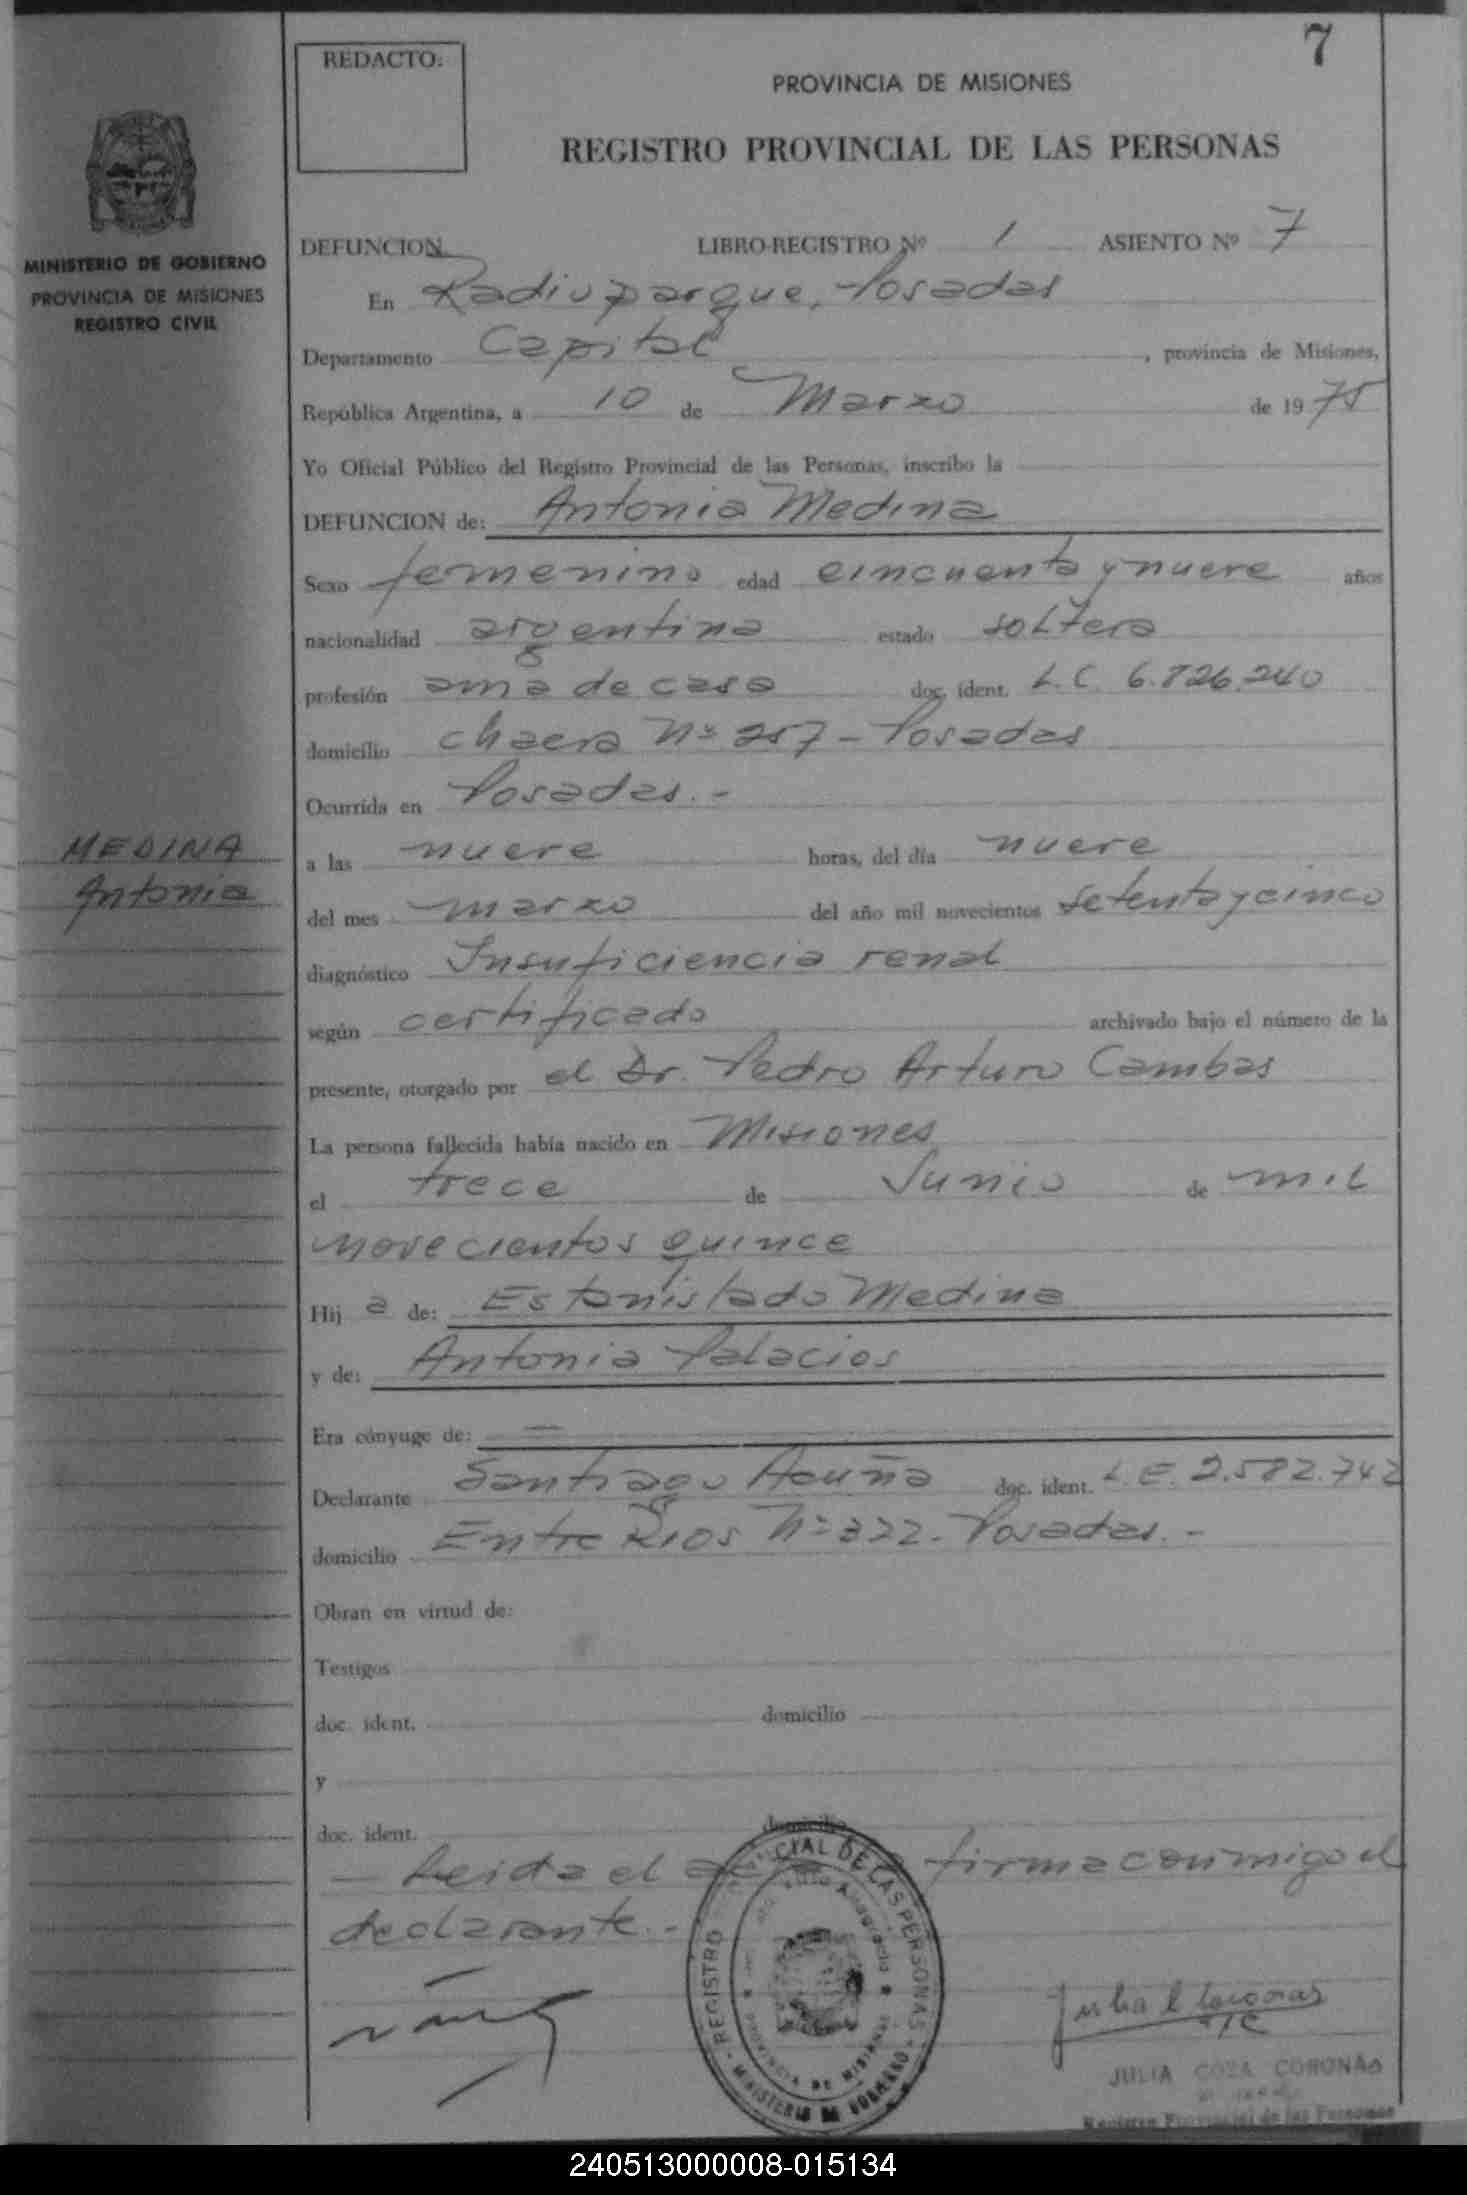 7
REDACTO:
PROVINCIA DE MISIONES
REGISTRO PROVINCIAL DE LAS PERSONAS
MINISTERIO DE GOBIERNO
PROVINCIA DE MISIONES
REGISTRO CIVIL
DEFUNCION LIBRO-REGISTRO Nº 1 ASIENTO Nº 7
En Radioparque, Posadas
Departamento Capital, provincia de Misiones,
República Argentina, a 10 de Marzo de 1975
Yo Oficial Público del Registro Provincial de las Personas, inscribo la
DEFUNCION de: Antonia Medina
Sexo femenino edad cincuenta y nueve años
nacionalidad argentina estado soltera
profesión ama de casa doc. ident. L.C. 6.826.240
domicilio chacra Nº 257 - Posadas
Ocurrida en Posadas.-
MEDINA
Antonia
a las nueve horas, del día nueve
del mes marzo del año mil novecientos setenta y cinco
diagnóstico Insuficiencia renal
según certificado archivado bajo el número de la
presente, otorgado por el Dr. Pedro Arturo Cambas
La persona fallecida había nacido en Misiones
el trece de Junio de mil
novecientos quince
Hij a de: Estanislado Medina
y de: Antonia Palacios
Era cónyuge de: —
Declarante Santiago Acuña doc. ident. L.E. 2.582.742
domicilio Entre Rios Nº 322 - Posadas.-
Obran en virtud de:
Testigos
doc. ident. domicilio
y
doc. ident. domicilio
— Leida el firma conmigo el
declarante.-
REGISTRO PROVINCIAL DE LAS PERSONAS
MINISTERIO DE GOBIERNO
PROVINCIA DE MISIONES
JULIA COZA CORONAS
Registro Provincial de las Personas
240513000008-015134